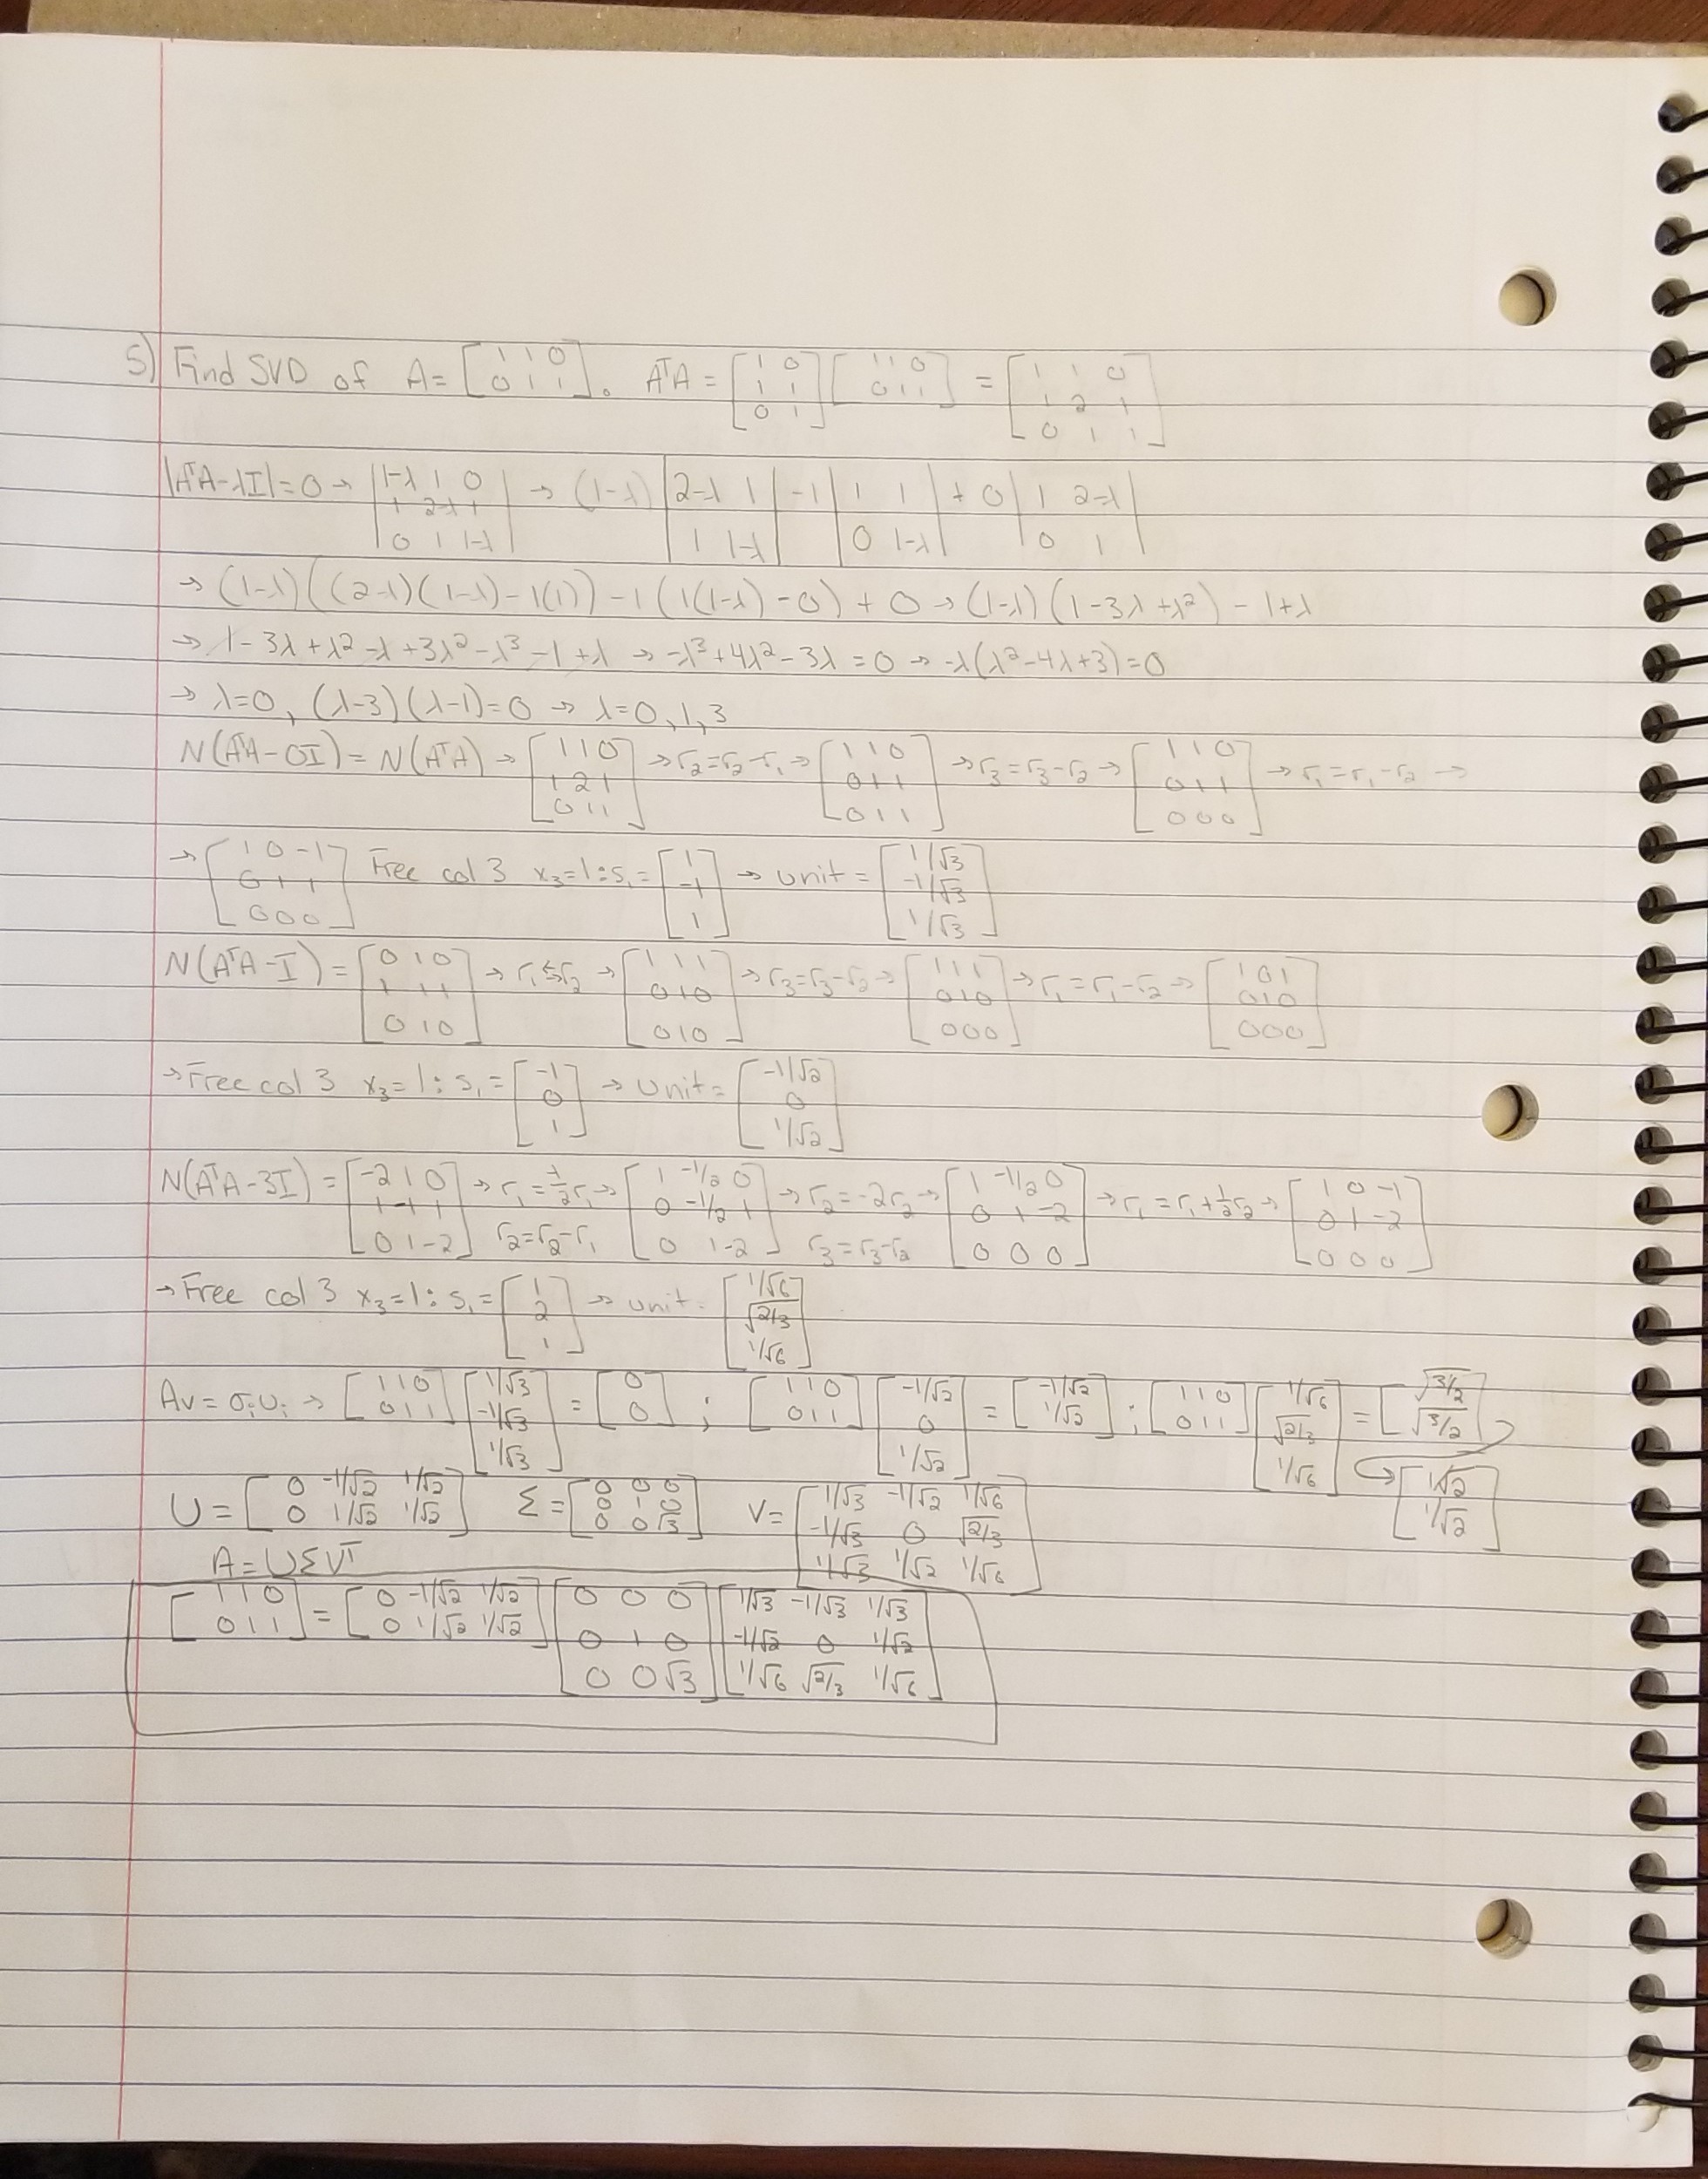 5) Find SVD of A = [1 1 0; 0 1 1]. AᵀA = [1 0; 1 1; 0 1] [1 1 0; 0 1 1] = [1 1 0; 1 2 1; 0 1 1]
|AᵀA-λI| = 0 → |1-λ 1 0; 1 2-λ 1; 0 1 1-λ| → (1-λ) |2-λ 1; 1 1-λ| -1 |1 1; 0 1-λ| + 0 |1 2-λ; 0 1|
→ (1-λ)((2-λ)(1-λ)-1(1)) -1(1(1-λ)-0) + 0 → (1-λ)(1-3λ+λ²) - 1+λ
→ 1-3λ+λ²-λ+3λ²-λ³-1+λ → -λ³+4λ²-3λ=0 → -λ(λ²-4λ+3)=0
→ λ=0, (λ-3)(λ-1)=0 → λ=0,1,3
N(AᵀA-0I) = N(AᵀA) → [1 1 0; 1 2 1; 0 1 1] → r₂=r₂-r₁ → [1 1 0; 0 1 1; 0 1 1] → r₃=r₃-r₂ → [1 1 0; 0 1 1; 0 0 0] → r₁=r₁-r₂ →
→ [1 0 -1; 0 1 1; 0 0 0] Free col 3 x₃=1: s₁= [1; -1; 1] → unit = [1/√3; -1/√3; 1/√3]
N(AᵀA-I) = [0 1 0; 1 1 1; 0 1 0] → r₁⇆r₂ → [1 1 1; 0 1 0; 0 1 0] → r₃=r₃-r₂ → [1 1 1; 0 1 0; 0 0 0] → r₁=r₁-r₂ → [1 0 1; 0 1 0; 0 0 0]
→ Free col 3 x₃=1: s₁= [-1; 0; 1] → unit = [-1/√2; 0; 1/√2]
N(AᵀA-3I) = [-2 1 0; 1 -1 1; 0 1 -2] → r₁=-1/2r₁ r₂=r₂-r₁ → [1 -1/2 0; 0 -1/2 1; 0 1 -2] → r₂=-2r₂ r₃=r₃-r₂ → [1 -1/2 0; 0 1 -2; 0 0 0] → r₁=r₁+1/2r₂ → [1 0 -1; 0 1 -2; 0 0 0]
→ Free col 3 x₃=1: s₁= [1; 2; 1] → unit = [1/√6; √2/3; 1/√6]
Av = σᵢuᵢ → [1 1 0; 0 1 1] [1/√3; -1/√3; 1/√3] = [0; 0] ; [1 1 0; 0 1 1] [-1/√2; 0; 1/√2] = [-1/√2; 1/√2] ; [1 1 0; 0 1 1] [1/√6; √2/3; 1/√6] = [√3/2; √3/2] → [1/√2; 1/√2]
U = [0 -1/√2 1/√2; 0 1/√2 1/√2] Σ = [0 0 0; 0 1 0; 0 0 √3] V = [1/√3 -1/√2 1/√6; -1/√3 0 √2/3; 1/√3 1/√2 1/√6]
A = UΣVᵀ
[1 1 0; 0 1 1] = [0 -1/√2 1/√2; 0 1/√2 1/√2] [0 0 0; 0 1 0; 0 0 √3] [1/√3 -1/√3 1/√3; -1/√2 0 1/√2; 1/√6 √2/3 1/√6]